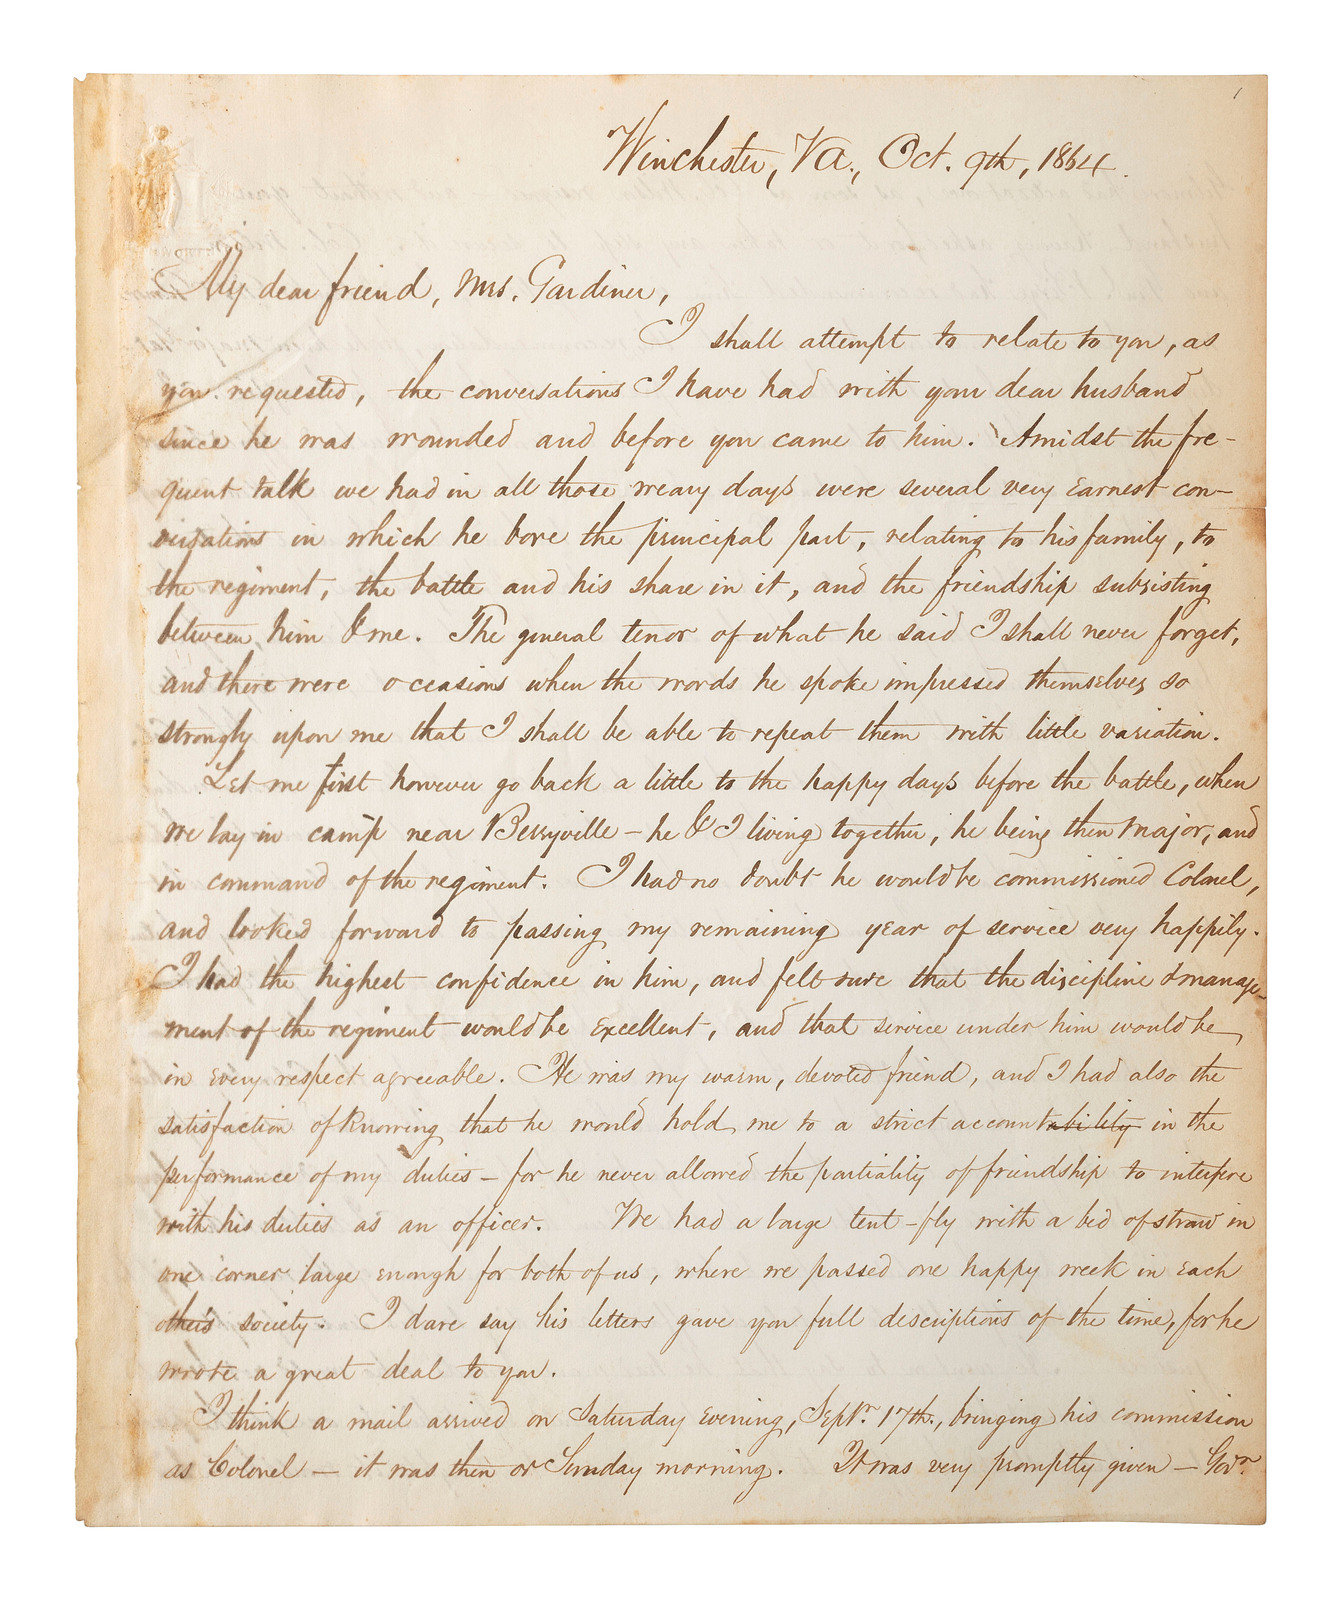 1
Winchester, Va., Oct. 9th, 1864.
My dear friend, Mrs. Gardiner,
I shall attempt to relate to you, as
you requested, the conversations I have had with your dear husband
since he was wounded and before you came to him. Amidst the fre-
quent talk we had in all those weary days were several very earnest con-
versations in which he bore the principal part, relating to his family, to
the regiment, the battle and his share in it, and the friendship subsisting
between him & me. The general tenor of what he said I shall never forget,
and there were occasions when the words he spoke impressed themselves so
strongly upon me that I shall be able to repeat them with little variation.
Let me first however go back a little to the happy days before the battle, when
we lay in camp near Berryville — he & I living together, he being then Major, and
in command of the regiment. I had no doubt he would be commissioned Colonel,
and looked forward to passing my remaining year of service very happily.
I had the highest confidence in him, and felt sure that the discipline & manage-
ment of the regiment would be excellent, and that service under him would be
in every respect agreeable. He was my warm, devoted friend, and I had also the
satisfaction of knowing that he would hold me to a strict accountability in the
performance of my duties — for he never allowed the partiality of friendship to interfere
with his duties as an officer. We had a large tent-fly with a bed of straw in
one corner large enough for both of us, where we passed one happy week in each
other's society. I dare say his letters gave you full descriptions of the time, for he
wrote a great deal to you.
I think a mail arrived on Saturday evening, Septr. 17th., bringing his commission
as Colonel — it was then or Sunday morning. It was very promptly given — Govr.